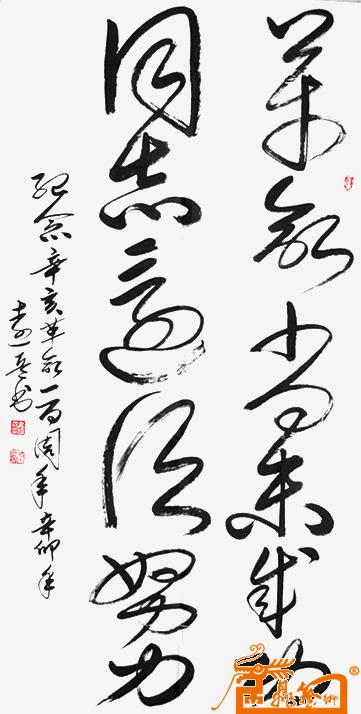 革命尚未成功
同志還須努力
纪念辛亥革命一百周年辛卯年
书